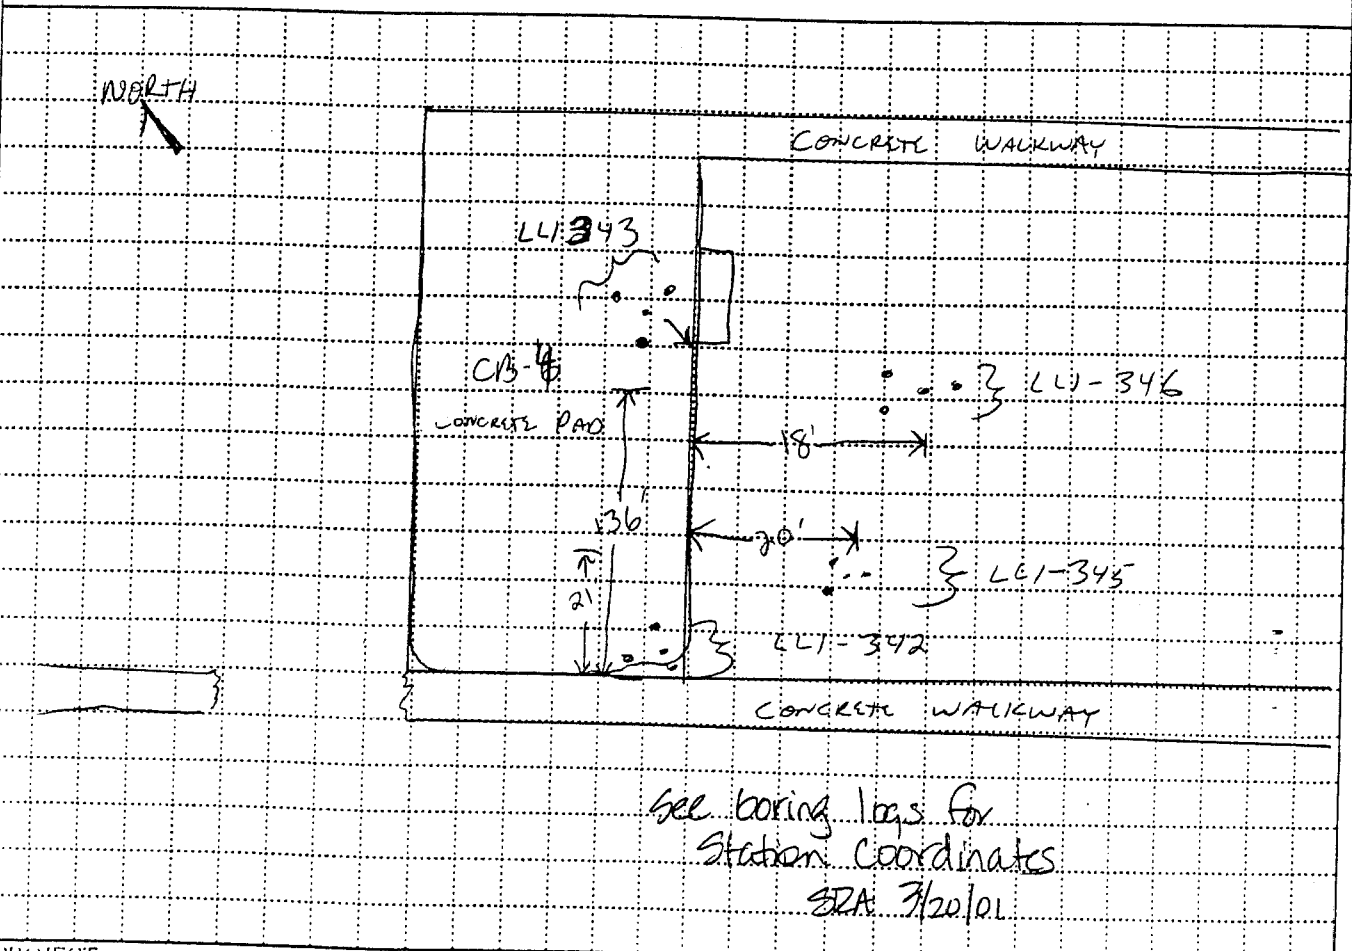 NORTH
CONCRETE WALKWAY
LL1343
CB-4
CONCRETE PAD
LL1-346
18'
136'
20'
LL1-345
21
LL1-342
CONCRETE WALKWAY
See boring logs for
Station Coordinates
SRA 3/20/01